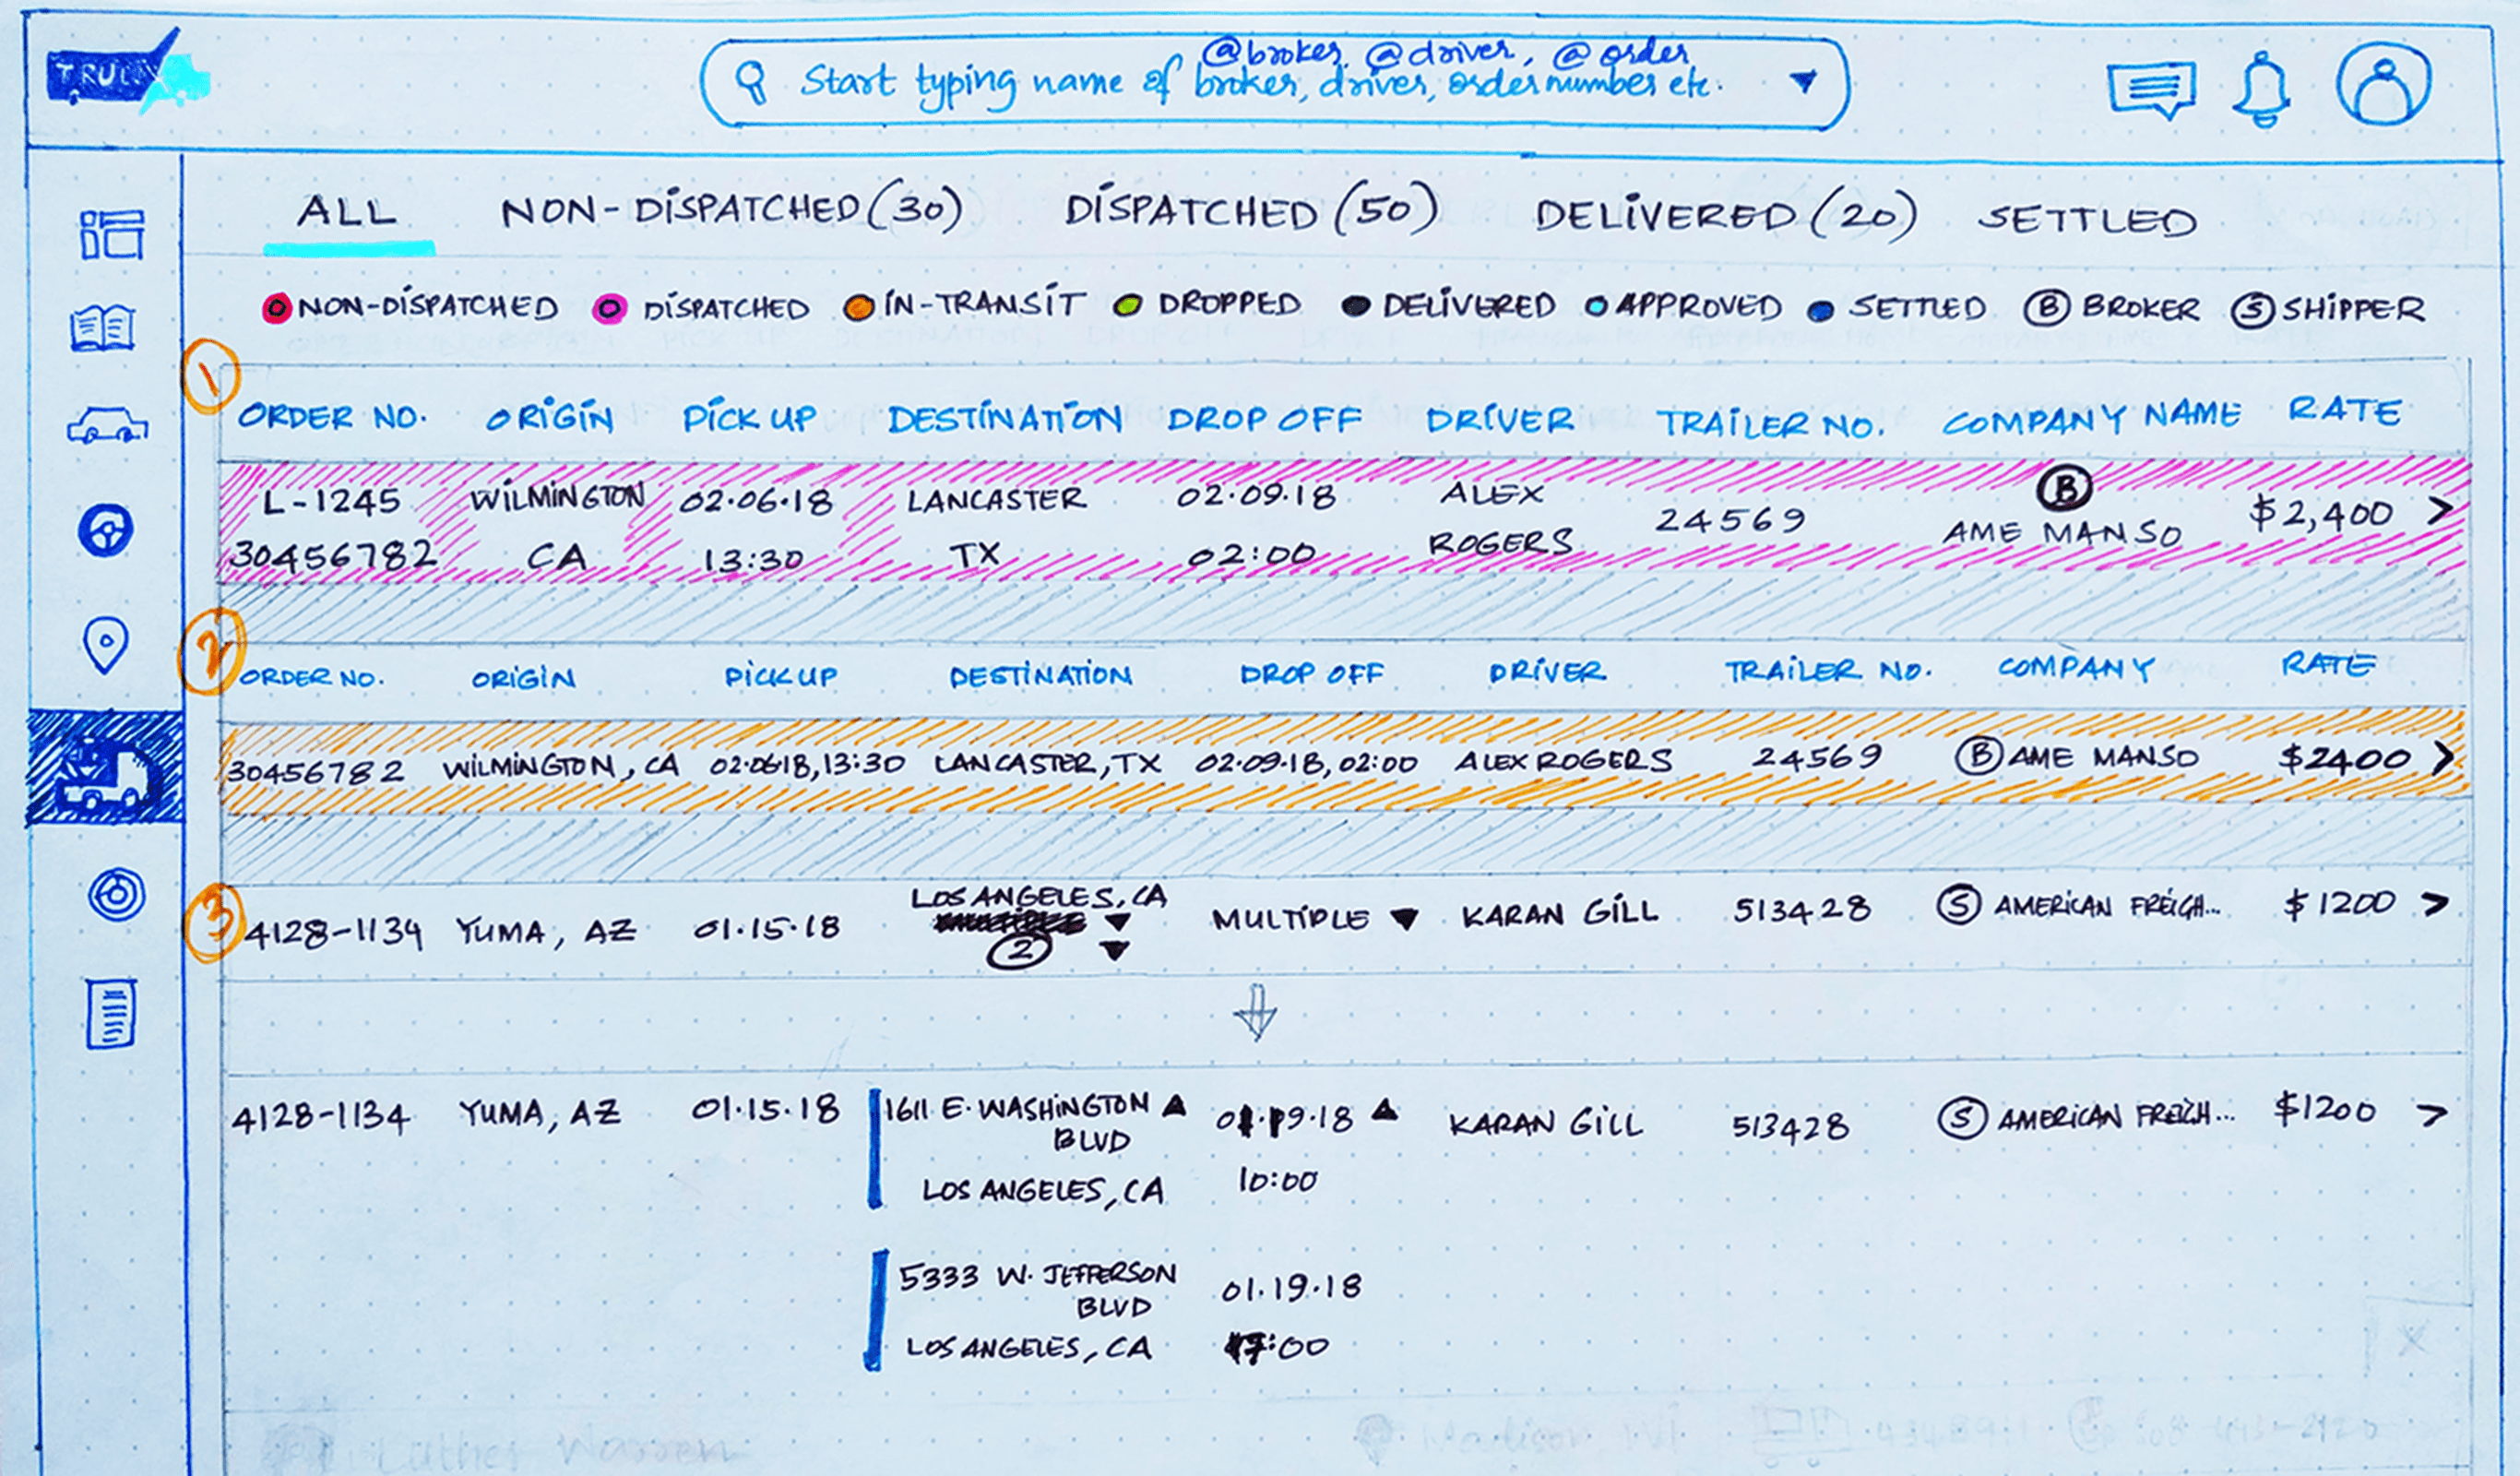 @broker, @driver, @order
Start typing name of broker, driver, order number etc.
ALL NON-DISPATCHED (30) DISPATCHED (50) DELIVERED (20) SETTLED
NON-DISPATCHED DISPATCHED IN-TRANSIT DROPPED DELIVERED APPROVED SETTLED B BROKER S SHIPPER
1
ORDER NO. ORIGIN PICK UP DESTINATION DROP OFF DRIVER TRAILER NO. COMPANY NAME RATE
L-1245 WILMINGTON 02.06.18 LANCASTER 02.09.18 ALEX 24569 B $2,400 >
30456782 CA 13:30 TX 02:00 ROGERS AME MANSO
2
ORDER NO. ORIGIN PICK UP DESTINATION DROP OFF DRIVER TRAILER NO. COMPANY RATE
30456782 WILMINGTON, CA 02.06.18, 13:30 LANCASTER, TX 02.09.18, 02:00 ALEX ROGERS 24569 B AME MANSO $2400 >
3
4128-1134 YUMA, AZ 01.15.18 LOS ANGELES, CA MULTIPLE KARAN GILL 513428 S AMERICAN FREIGH... $1200 >
2
4128-1134 YUMA, AZ 01.15.18 1611 E. WASHINGTON 01.19.18 KARAN GILL 513428 S AMERICAN FREIGH... $1200 >
BLVD
LOS ANGELES, CA 10:00
5333 W. JEFFERSON 01.19.18
BLVD
LOS ANGELES, CA :00
Luther Warren